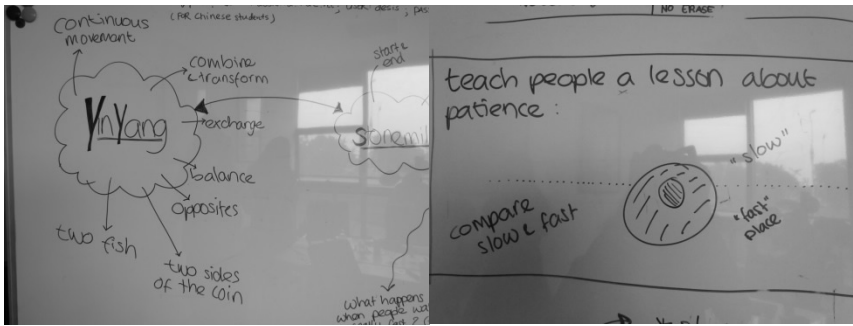 (FOR Chinese students)
continuous
movement
combine
& transform
start &
end
YinYang
exchange
balance
opposites
two fish
two sides
of the coin
What happens
when people
NO ERASE
teach people a lesson about
patience :
"slow"
"fast"
place
compare
slow & fast